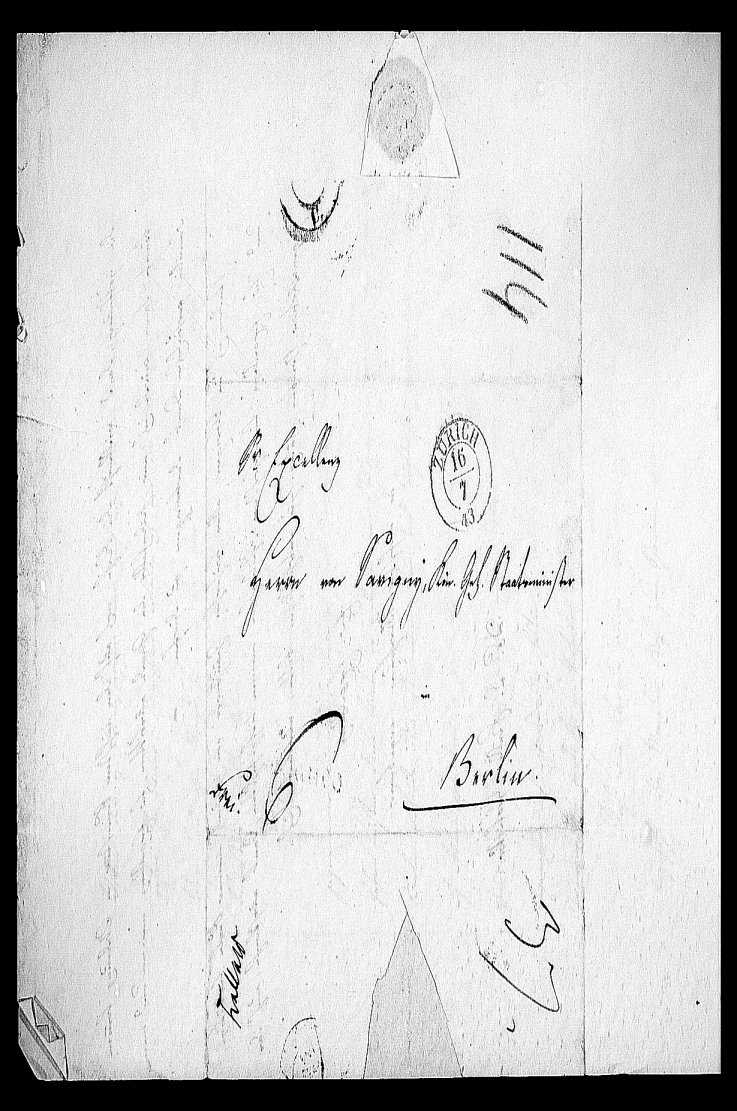 114
ZÜRICH
16
7
43
Sr Excellenz
Herrn von Savigny, Kön. Geh. Staatsminister
in
Berlin.
frei.
6